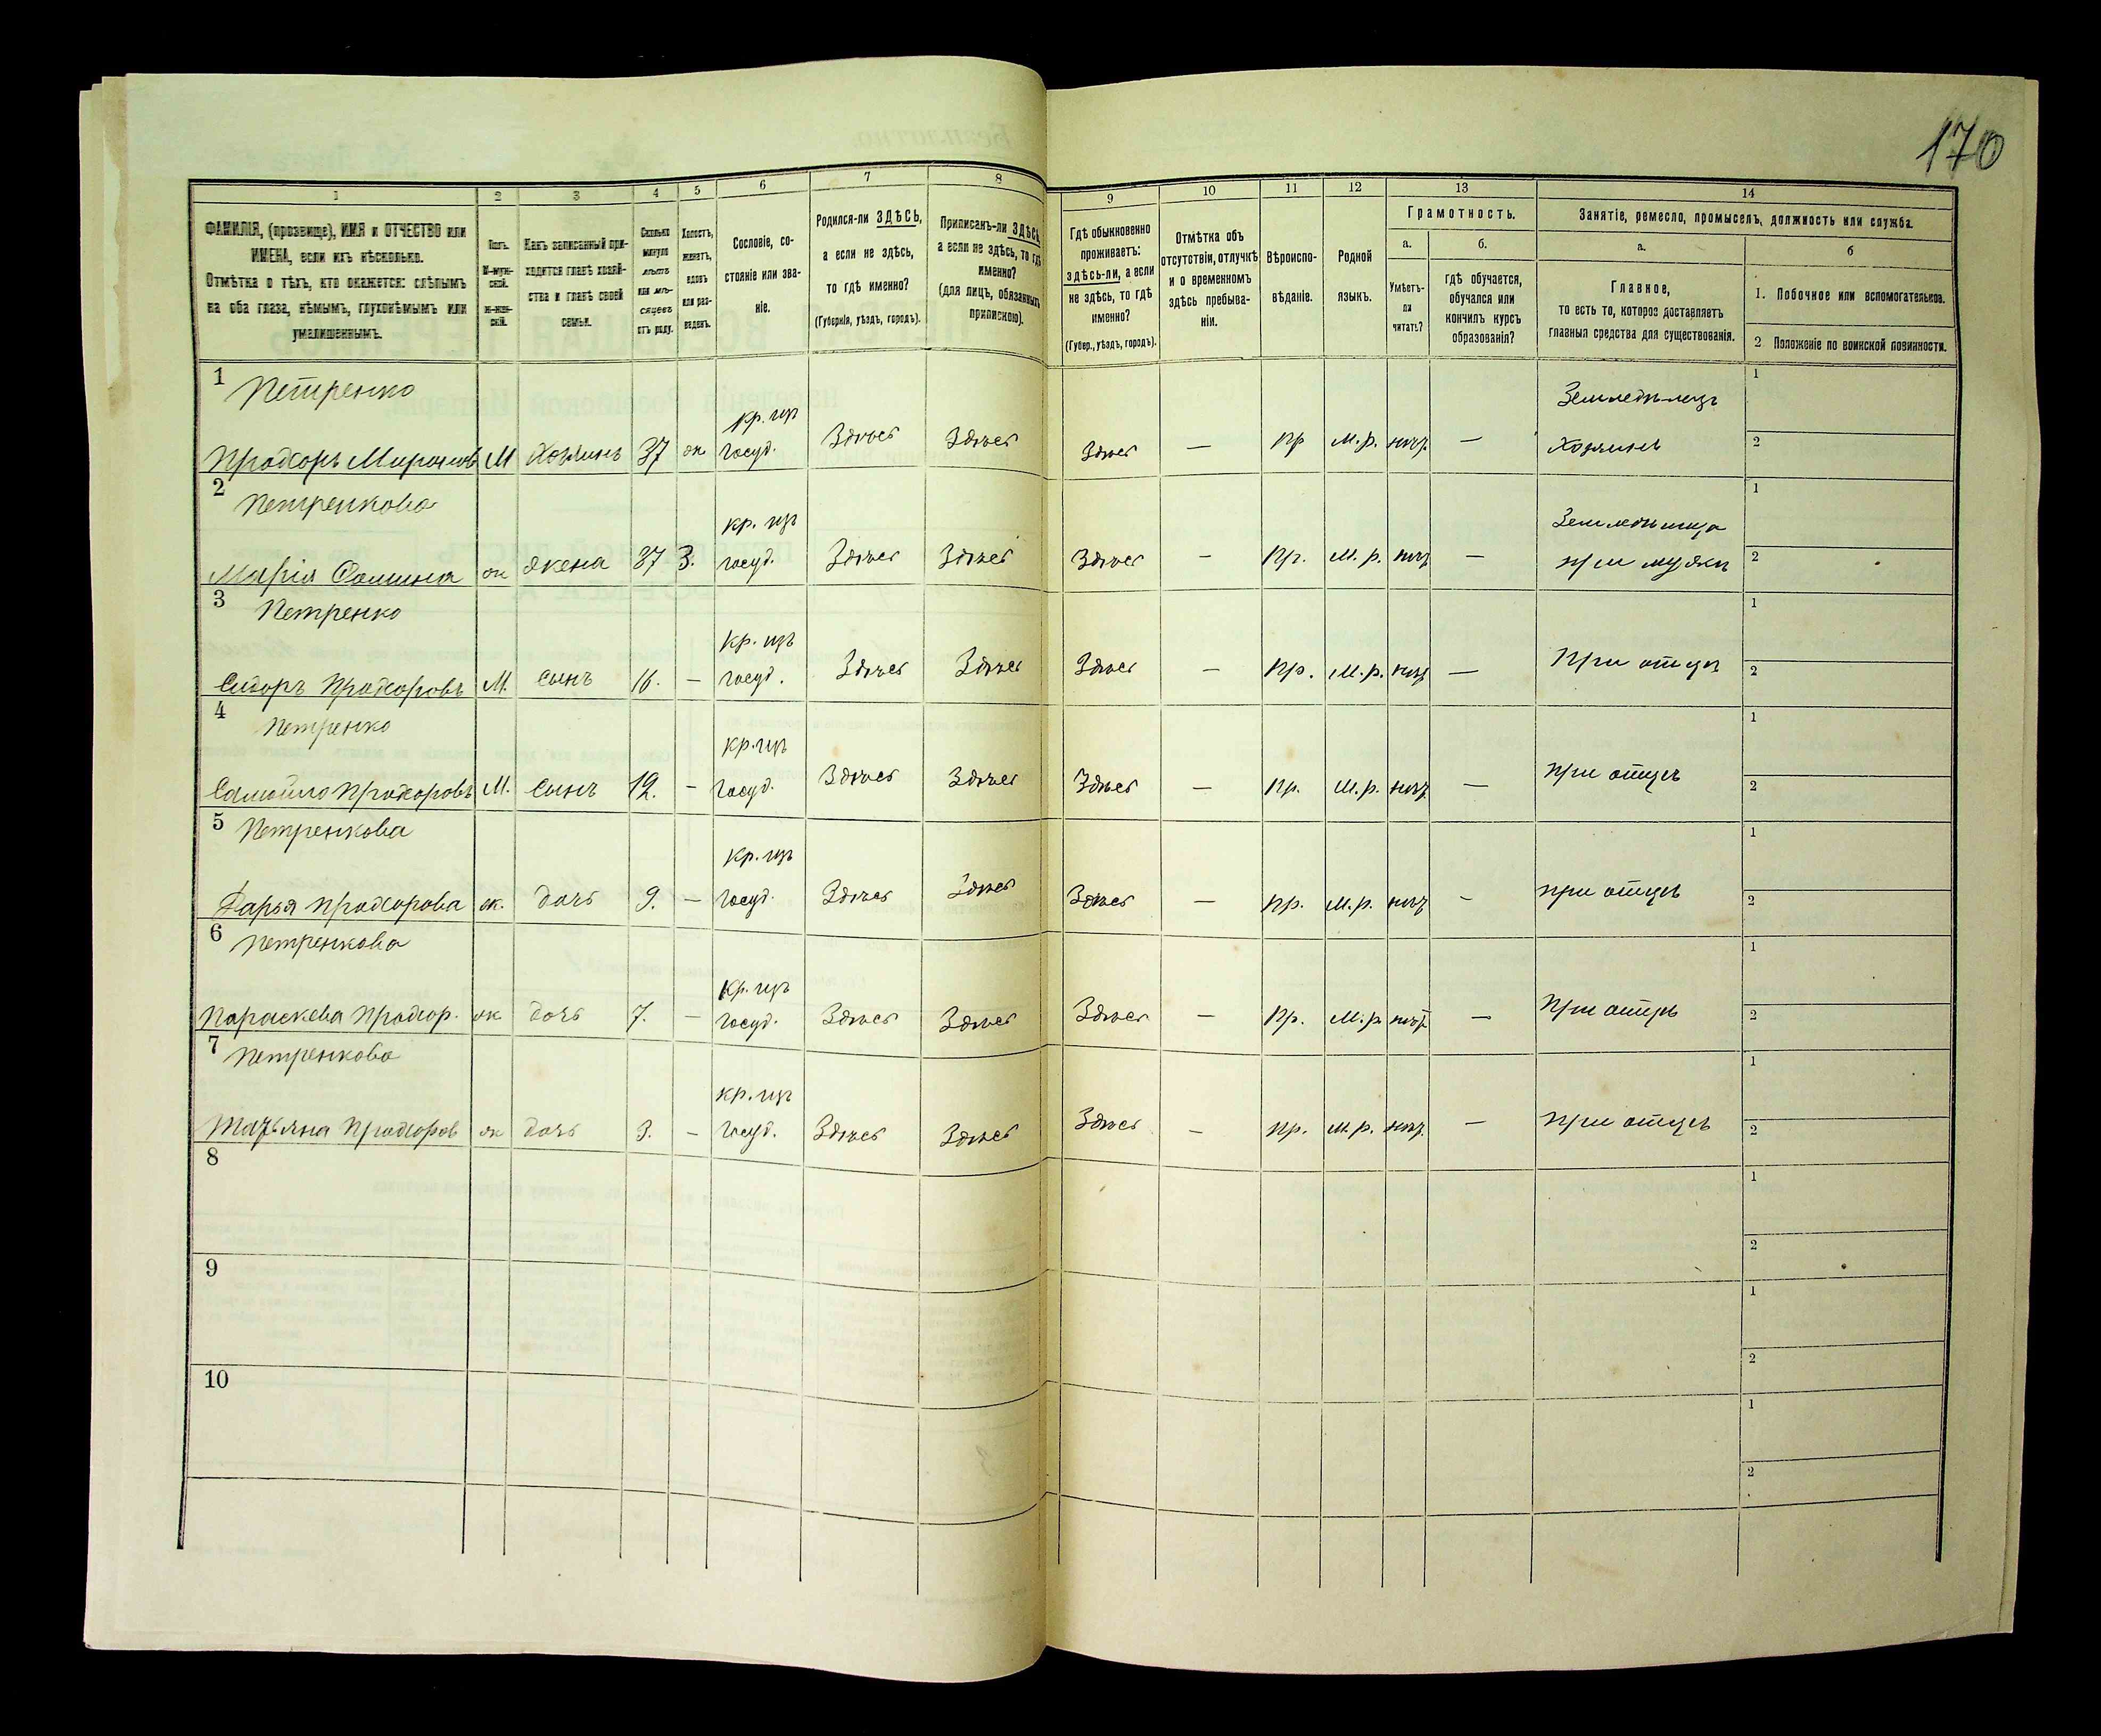 170
1 2 3 4 5 6 7 8 9 10 11 12 13 14
ФАМИЛІЯ, (прозвище), ИМЯ и ОТЧЕСТВО или
ИМЕНА, если ихъ нѣсколько.
Отмѣтка о тѣхъ, кто окажется: слѣпымъ
на оба глаза, нѣмымъ, глухонѣмымъ или
умалишеннымъ.
Полъ.
М-муж-
ской.
Ж-жен-
скій.
Какъ записанный при-
ходится главѣ хозяй-
ства и главѣ своей
семьи.
Сколько
минуло
лѣтъ
или мѣ-
сяцевъ
отъ роду.
Холостъ,
женатъ,
вдовъ
или раз-
веденъ.
Сословіе, со-
стояніе или зва-
ніе.
Родился-ли ЗДѢСЬ,
а если не здѣсь,
то гдѣ именно?
(Губернія, уѣздъ, городъ).
Приписанъ-ли ЗДѢСЬ,
а если не здѣсь, то гдѣ
именно?
(для лицъ, обязанныхъ
припискою).
Гдѣ обыкновенно
проживаетъ:
здѣсь-ли, а если
не здѣсь, то гдѣ
именно?
(Губер., уѣздъ, городъ).
Отмѣтка объ
отсутствіи, отлучкѣ
и о временномъ
здѣсь пребыва-
ніи.
Вѣроиспо-
вѣданіе.
Родной
языкъ.
Грамотность.
а. б.
Умѣетъ-
ли
читать?
гдѣ обучается,
обучался или
кончилъ курсъ
образованія?
Занятіе, ремесло, промыселъ, должность или служба.
а. б
Главное,
то есть то, которое доставляетъ
главныя средства для существованія.
1. Побочное или вспомогательное.
2 Положеніе по воинской повинности.
1 Петренко кр. изъ Земледѣлецъ 1
Прохоръ Мироновъ М Хозяинъ 37 ж госуд. Здѣсь Здѣсь Здѣсь — пр М.р. нѣтъ — Хозяинъ 2
2 Петренкова кр. изъ 1
Марія ж жена 37 З. госуд. Здѣсь Здѣсь Здѣсь — пр. М.р. нѣтъ — при мужѣ 2
3 Петренко кр. изъ 1
Сидоръ Прохоровъ М. сынъ 16. — госуд. Здѣсь Здѣсь Здѣсь — пр. М.р. нѣтъ — при отцѣ 2
4 Петренко кр. изъ 1
Самойло Прохоровъ М. сынъ 12. — госуд. Здѣсь Здѣсь Здѣсь — пр. М.р. нѣтъ — при отцѣ 2
5 Петренкова кр. изъ 1
Дарья Прохорова ж. дочь 9. — госуд. Здѣсь Здѣсь Здѣсь — пр. М.р. нѣтъ — при отцѣ 2
6 Петренкова кр. изъ 1
Параскева Прохор. ж дочь 7. — госуд. Здѣсь Здѣсь Здѣсь — пр. М.р. нѣтъ — при отцѣ 2
7 Петренкова кр. изъ 1
Татьяна Прохоров ж дочь 3. — госуд. Здѣсь Здѣсь Здѣсь — пр. М.р. нѣтъ — при отцѣ 2
8 1
2
9 1
2
10 1
2